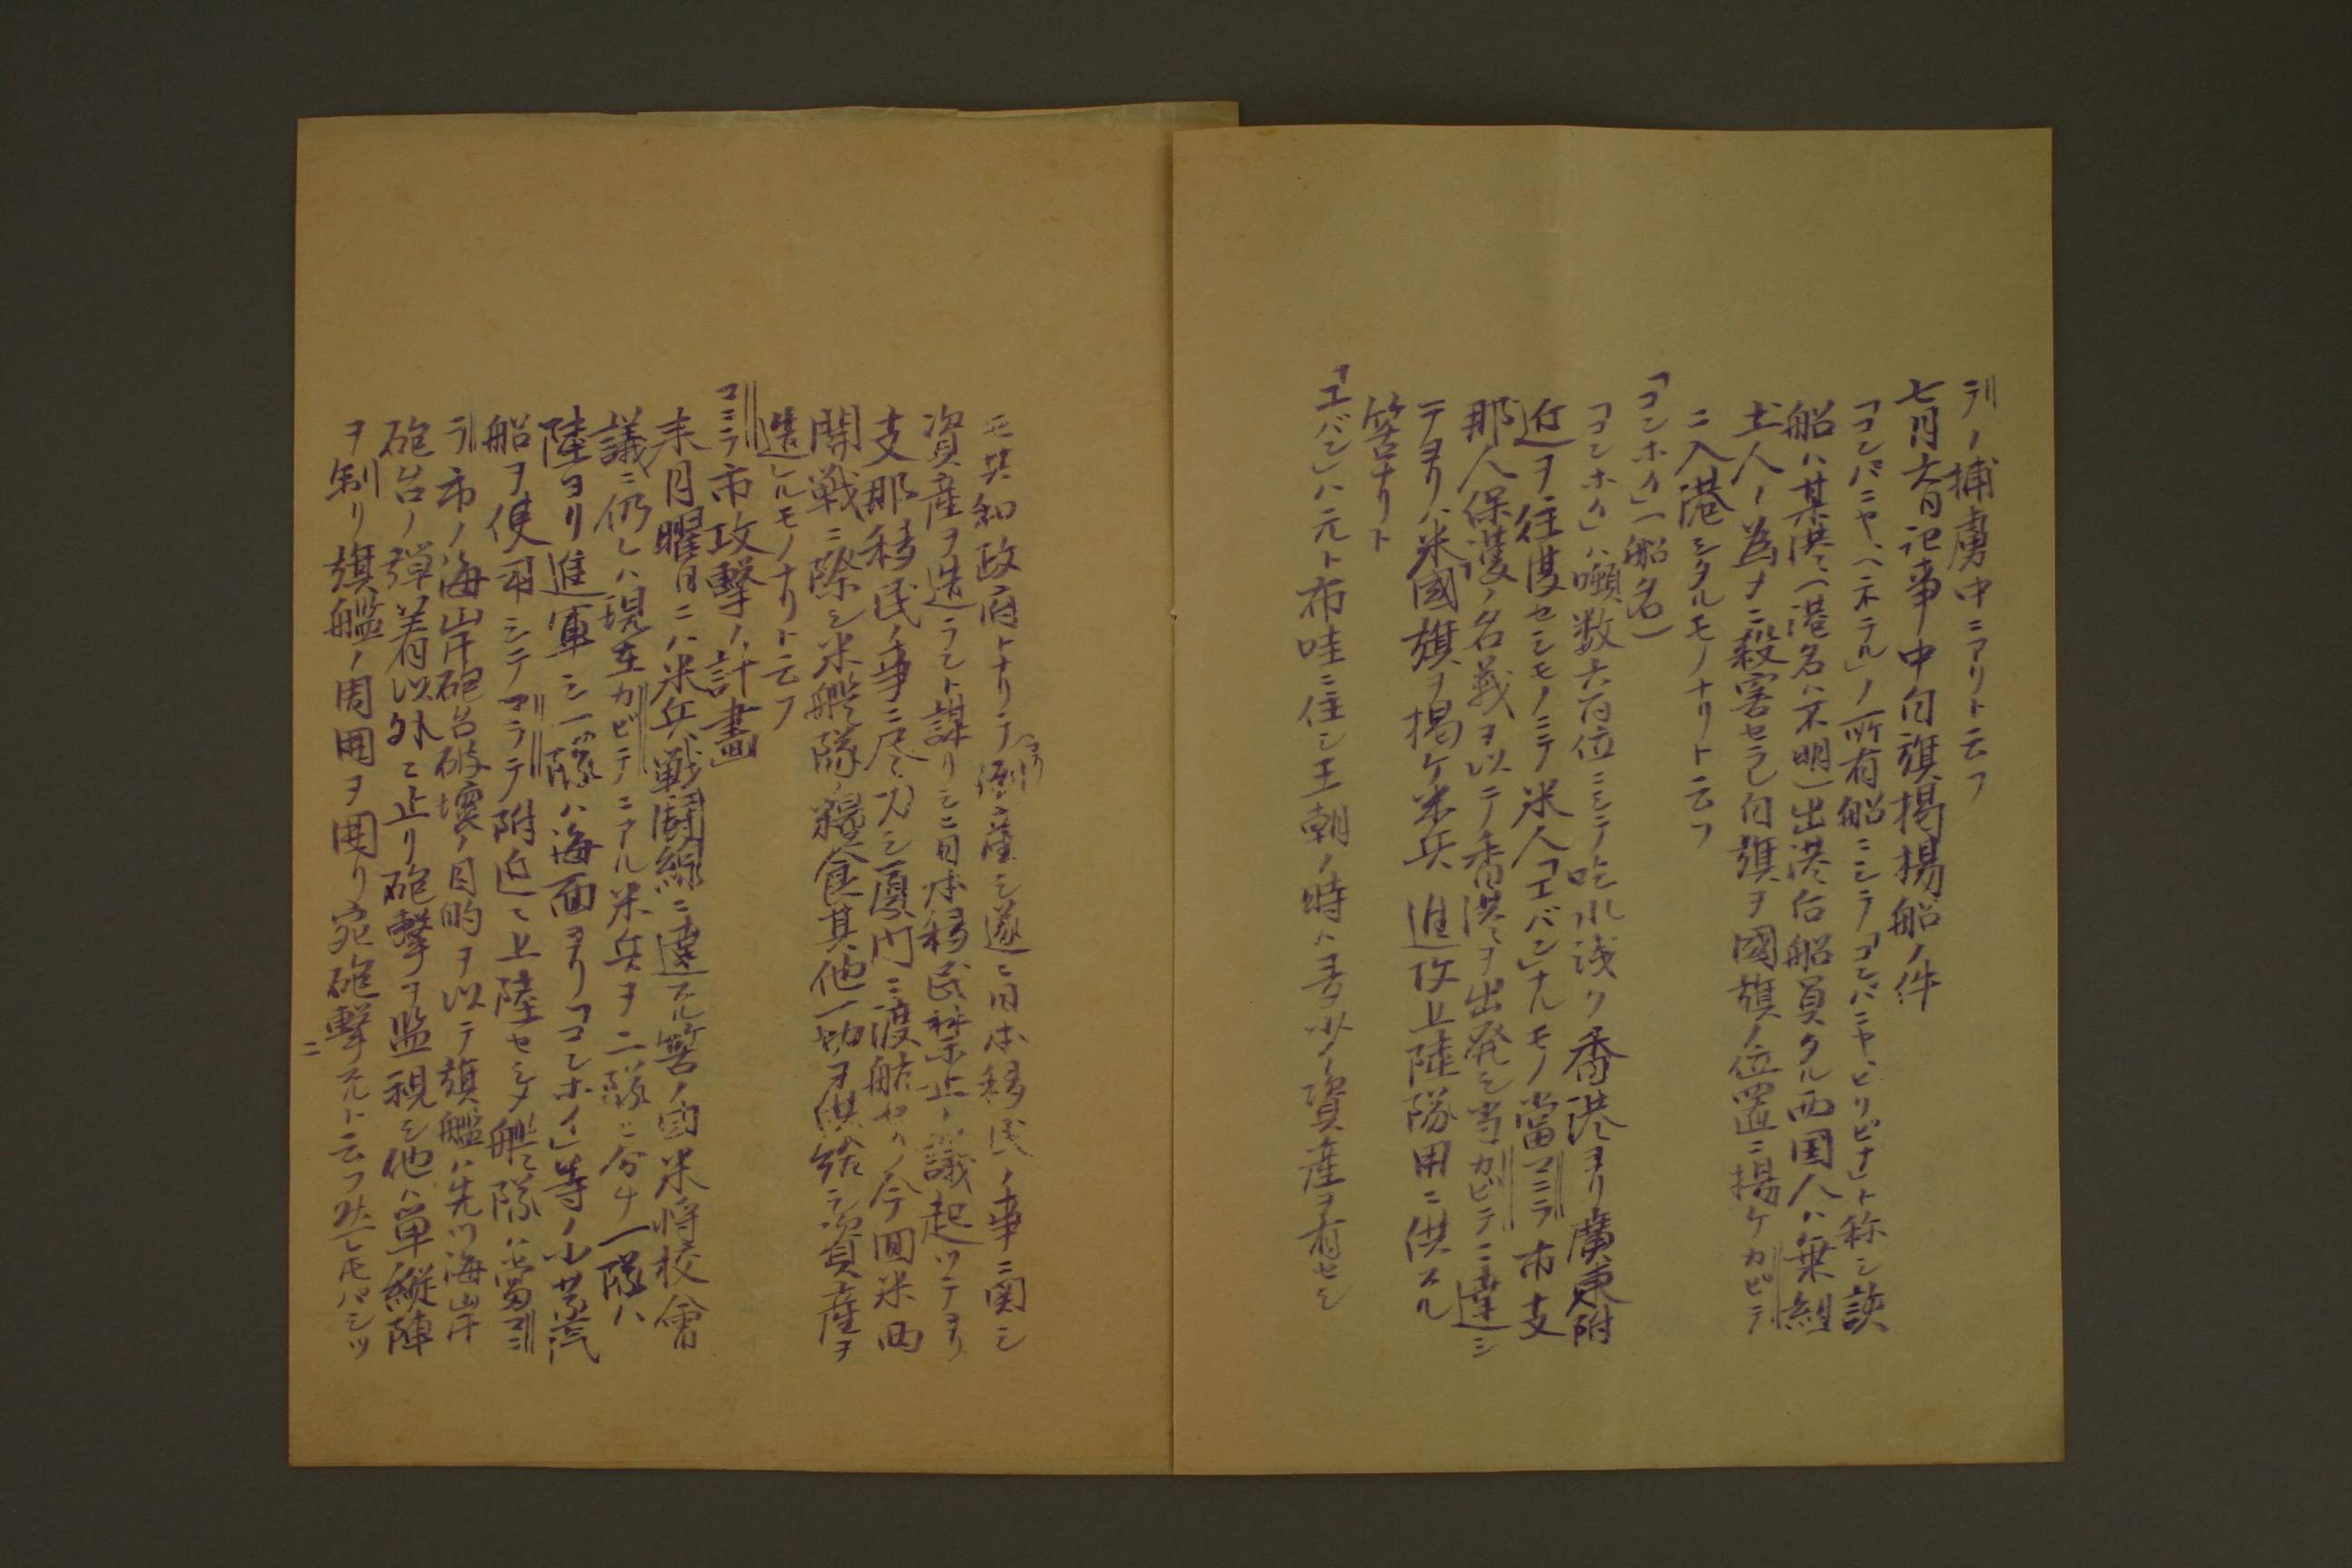 テノ捕虜中ニアリト云フ
七月六日記事中白旗掲揚船ノ件
「コンパニヤ、ヘネラル」ノ所有船ニシテ「コンパニヤ、ヒリピナ」ト称シ該
船ハ某港(港名ハ不明)出港后船員タル西国人ハ乗組
土人ノ為メニ殺害セラレ白旗ヲ國旗ノ位置ニ揚ケカビテ
ニ入港シタルモノナリト云フ
「コンホイ」(船名)
「コンホイ」ハ噸数六百位ニシテ吃水浅ク香港ヨリ廣東附
近ヲ往復セシモノニテ米人「エバン」ナルモノ當マニラ市支
那人保護ノ名義ヲ以テ香港ヲ出発シ当カビテニ達シ
テヨリハ米國旗ヲ掲ケ米兵進攻上陸隊用ニ供スル
筈ナリト
「エバン」ハ元ト布哇ニ住シ王朝ノ時ハ多少ノ資産ヲ有セシ
モ共和政府トナリテヨリ倒産シ遂ニ日本移民ノ事ニ関シ
資産ヲ造ラント謀リシニ日本移民禁止ノ議起ツテヨリ
支那移民ノ事ニ尽力シ厦門ニ渡航セリ今回米西
開戦ニ際シ米艦隊ノ糧食其他一切ヲ供給シ資産ヲ
造レルモノナリト云フ
マニラ市攻撃ノ計畫
来月曜日ニハ米兵戦闘線ニ達スル筈ノ由米将校會
議ニ仍レハ現在カビテニアル米兵ヲ二隊ニ分ケ一隊ハ
陸ヨリ進軍シ一隊ハ海面ヨリ「コンホイ」等ノ小蒸汽
船ヲ使用シテマラテ附近ニ上陸セシメ艦隊ハ當マニ
ラ市ノ海岸砲台破壊ノ目的ヲ以テ旗艦ハ先ツ海岸
砲台ノ弾着以外ニ止リ砲撃ヲ監視シ他ハ単縦陣
ヲ制リ旗艦ノ周囲ヲ囲リ宛砲撃スルト云フ然レモバシツ
ニ